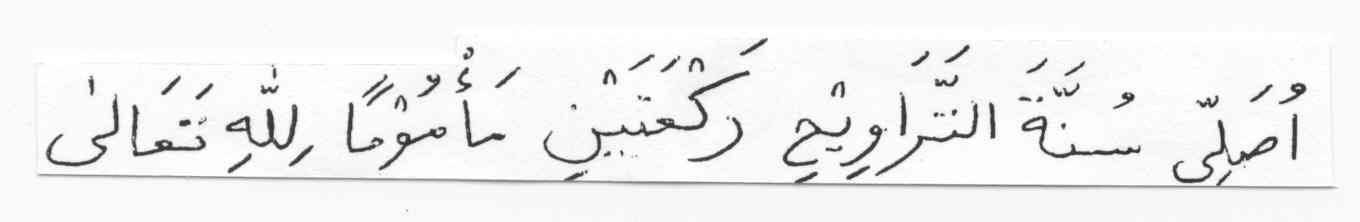 اُصَلِّى سُنَّةَ التَّرَاوِيْحِ رَكْعَتَيْنِ مَأْمُوْمًا لِلّٰهِ تَعَالىٰ